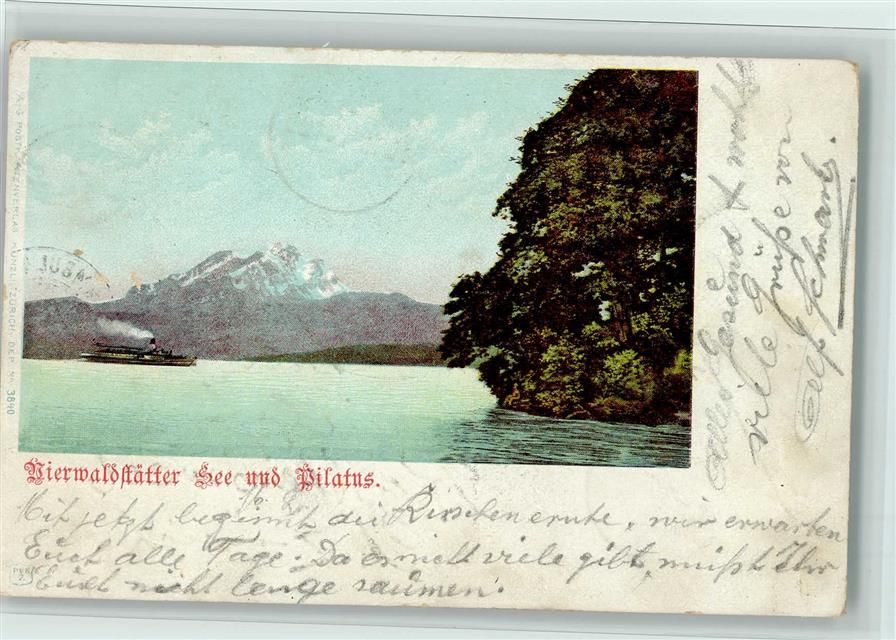 Vierwaldstätter See und Pilatus.
Mit jetzt beginnt die Kirschenernte, wir erwarten
Euch alle Tage. Da es nicht viele gibt, müßt Ihr
Euch nicht lange säumen.
Alles Gesund & wohl
viele Grüße von
POSTKARTENVERLAG KÜNZLI, ZÜRICH, DEP. No. 3840